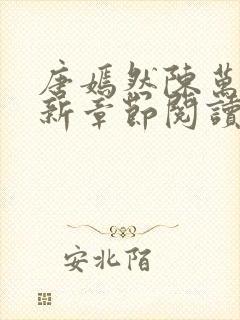 唐嫣然陳萬
新章節閱讀
安北陌